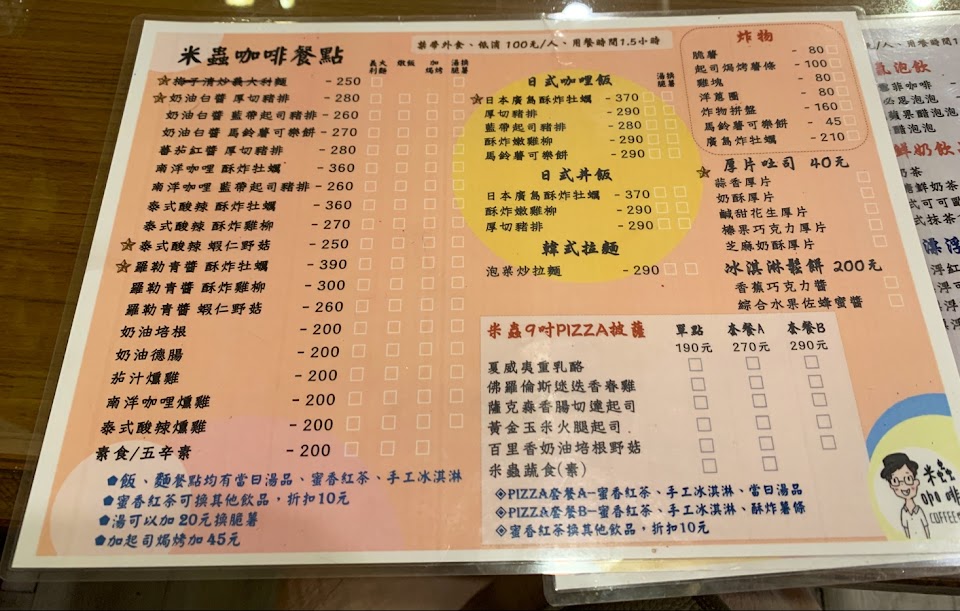 米蟲咖啡餐點
禁帶外食、低消 100元/人、用餐時間1.5小時
義大利麵 燉飯 加焗烤 湯換脆薯
梅子清炒義大利麵 -250
奶油白醬 厚切豬排 -280
奶油白醬 藍帶起司豬排 -260
奶油白醬 馬鈴薯可樂餅 -270
蕃茄紅醬 厚切豬排 -280
南洋咖哩 酥炸牡蠣 -360
南洋咖哩 藍帶起司豬排 -260
泰式酸辣 酥炸牡蠣 -360
泰式酸辣 酥炸雞柳 -270
泰式酸辣 蝦仁野菇 -250
羅勒青醬 酥炸牡蠣 -390
羅勒青醬 酥炸雞柳 -300
羅勒青醬 蝦仁野菇 -260
奶油培根 -200
奶油德腸 -200
茄汁燻雞 -200
南洋咖哩燻雞 -200
泰式酸辣燻雞 -200
素食/五辛素 -200
飯、麵餐點均有當日湯品、蜜香紅茶、手工冰淇淋
蜜香紅茶可換其他飲品，折扣10元
湯可以加20元換脆薯
加起司焗烤加 45元
日式咖哩飯
湯換脆薯
日本廣島酥炸牡蠣 -370
厚切豬排 -290
藍帶起司豬排 -280
酥炸嫩雞柳 -290
馬鈴薯可樂餅 -290
日式丼飯
日本廣島酥炸牡蠣 -370
酥炸嫩雞柳 -290
厚切豬排 -290
韓式拉麵
泡菜炒拉麵 -290
炸物
脆薯 - 80
起司焗烤薯條 -100
雞塊 - 80
洋蔥圈 - 80
炸物拼盤 -160
馬鈴薯可樂餅 - 45
廣島炸牡蠣 -210
厚片吐司 40元
蒜香厚片
奶酥厚片
鹹甜花生厚片
榛果巧克力厚片
芝麻奶酥厚片
冰淇淋鬆餅 200元
香蕉巧克力醬
綜合水果佐蜂蜜醬
米蟲9吋PIZZA披薩 單點 套餐A 套餐B
190元 270元 290元
夏威夷重乳酪
佛羅倫斯迷迭香春雞
薩克森香腸切達起司
黃金玉米火腿起司
百里香奶油培根野菇
米蟲蔬食(素)
PIZZA套餐A-蜜香紅茶、手工冰淇淋、當日湯品
PIZZA套餐B-蜜香紅茶、手工冰淇淋、酥炸薯條
蜜香紅茶換其他飲品，折扣10元
米蟲
咖啡
COFFEE
、用餐時間1
氣泡飲
蘋果醋泡泡
醋泡泡
鮮奶飲品
奶茶
鮮奶茶
式可可
式抹茶
漂浮
浮紅
浮可